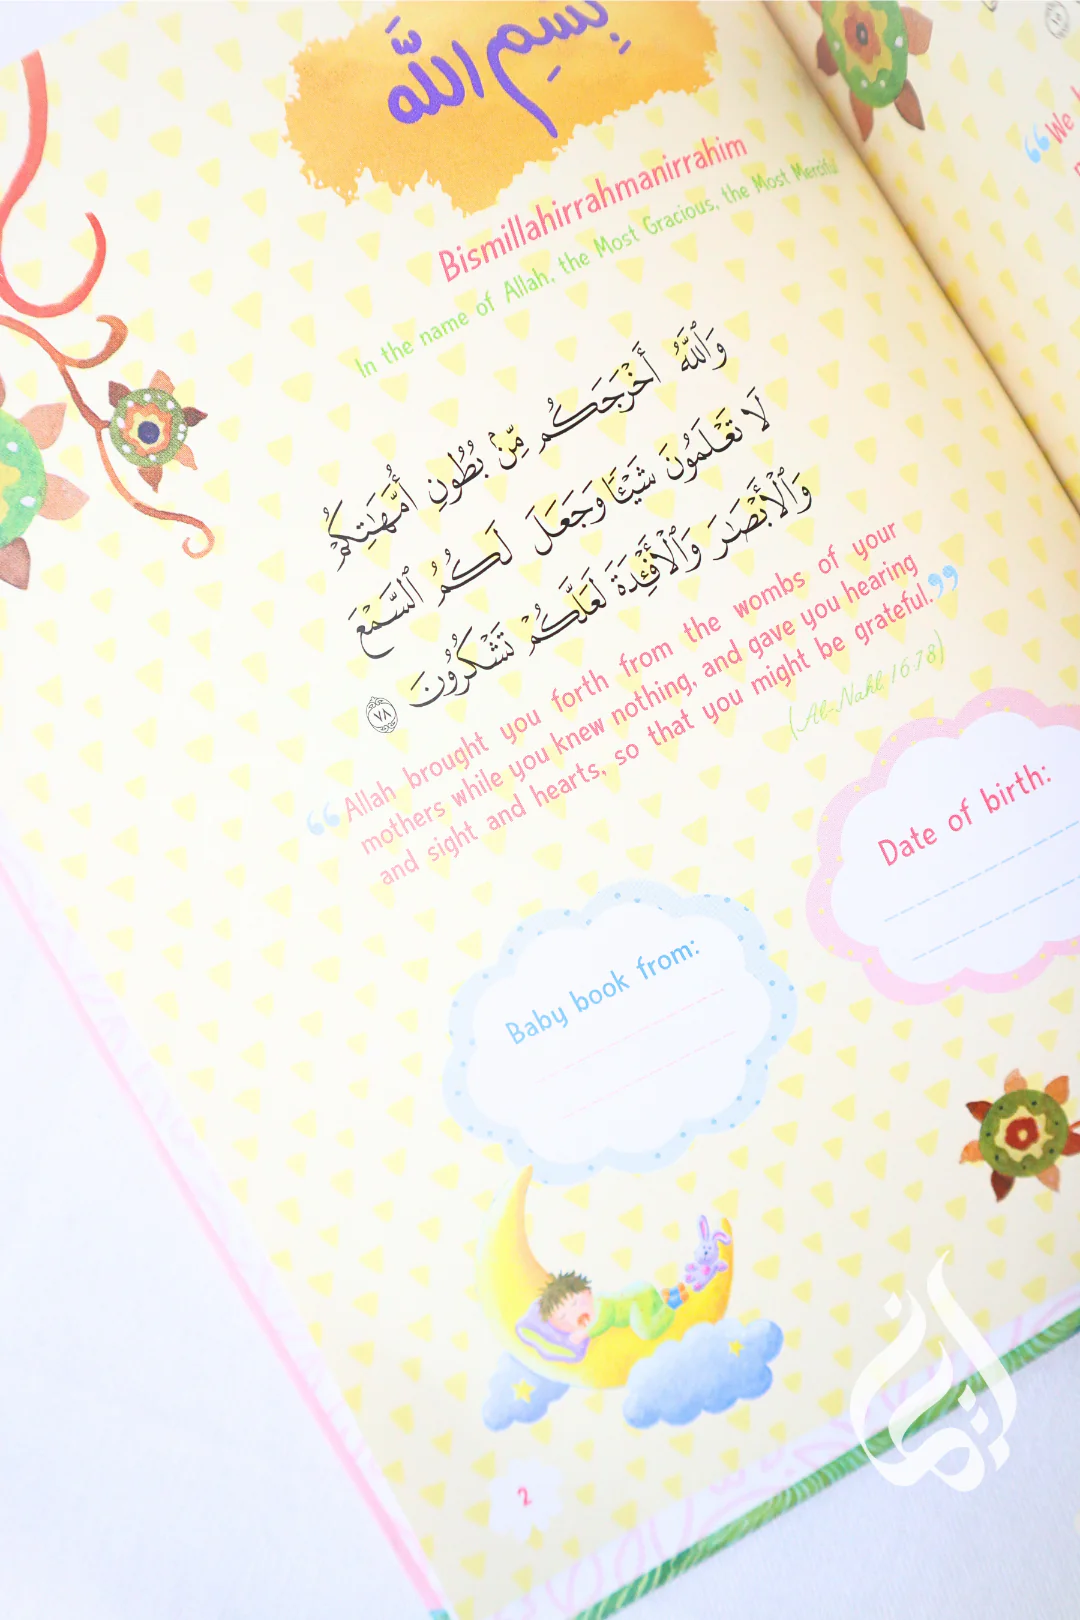 بِسْمِ اللَّه
Bismillahirrahmanirrahim
In the name of Allah, the Most Gracious, the Most Merciful
وَٱللَّهُ أَخْرَجَكُم مِّنۢ بُطُونِ أُمَّهَـٰتِكُمْ
لَا تَعْلَمُونَ شَيْـًٔا وَجَعَلَ لَكُمُ ٱلسَّمْعَ
وَٱلْأَبْصَـٰرَ وَٱلْأَفْـِٔدَةَ لَعَلَّكُمْ تَشْكُرُونَ ٧٨
“Allah brought you forth from the wombs of your
mothers while you knew nothing, and gave you hearing
and sight and hearts, so that you might be grateful.”
(Al-Nahl 16:78)
Date of birth:
Baby book from:
2
“We